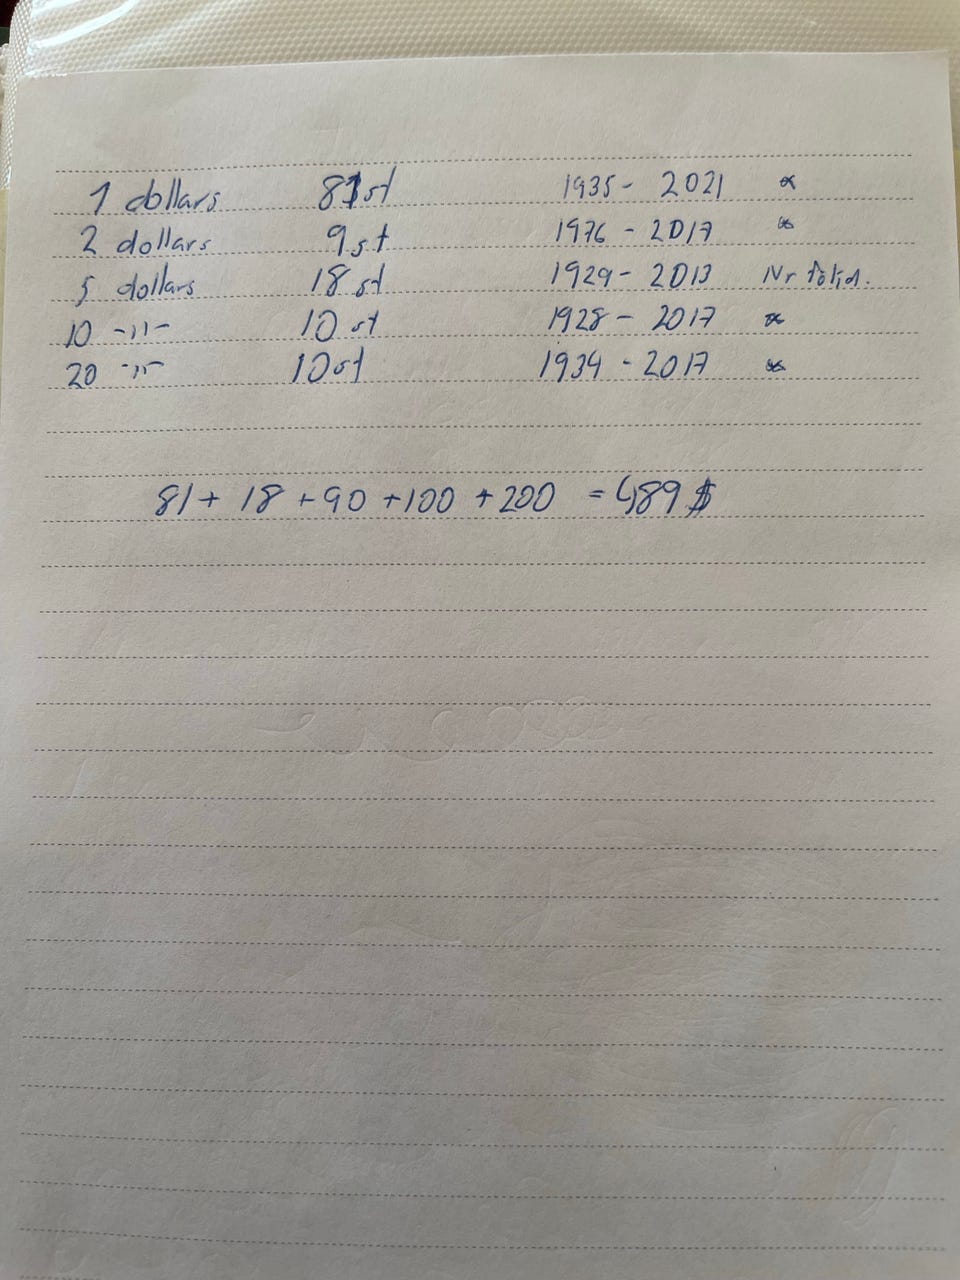 1 dollars 81st 1935 - 2021 *
2 dollars 9st 1976 - 2017 *
5 dollars 18 st 1929 - 2013 Nr följd.
10 -"- 10 st 1928 - 2017 *
20 -"- 10st 1934 - 2017 *
81 + 18 + 90 + 100 + 200 = 489 $